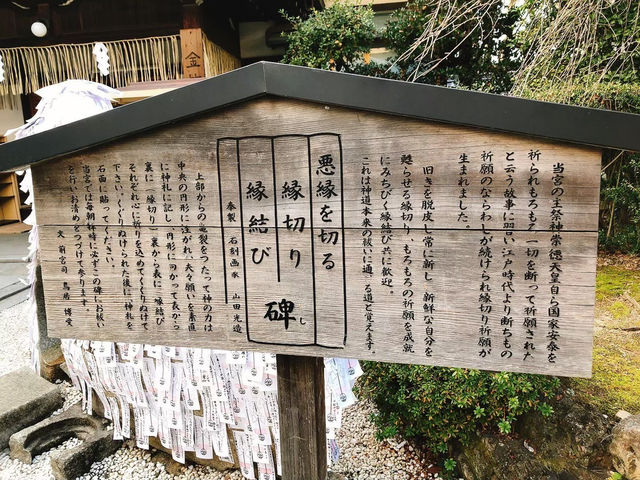 当宮の主祭神崇徳天皇自ら国家安泰を
祈られもろもろ一切を断って祈願された
と云う故事に習い江戸時代より断ちもの
祈願のならわしが続けられ縁切り祈願が
生まれました。
旧きを脱皮し常に新し 新鮮な自分を
甦らせる縁切り、もろもろの祈願を成就
にみちびく縁結び共に歓迎。
これは神道本来の祓いに通じる道と言えます。
悪縁を切る
縁切り
縁結び
碑
し
奉製 石刻画家 山田光造
上部からの亀裂をつたって神の力は
中央の円形に注がれ、夫々願いを素直
に神札に記し、円形に向かって表から
裏に「縁切り」裏から表に「縁結び」
それぞれ心に祈りを込めてくぐりぬけて
下さい。くぐりぬけられた後に神札を
石面に貼ってください。
当宮では毎朝拝時に必ずこの碑にお祓い
を行いお清めをつづけて参ります。
文 前宮司 鳥居 博愛
金